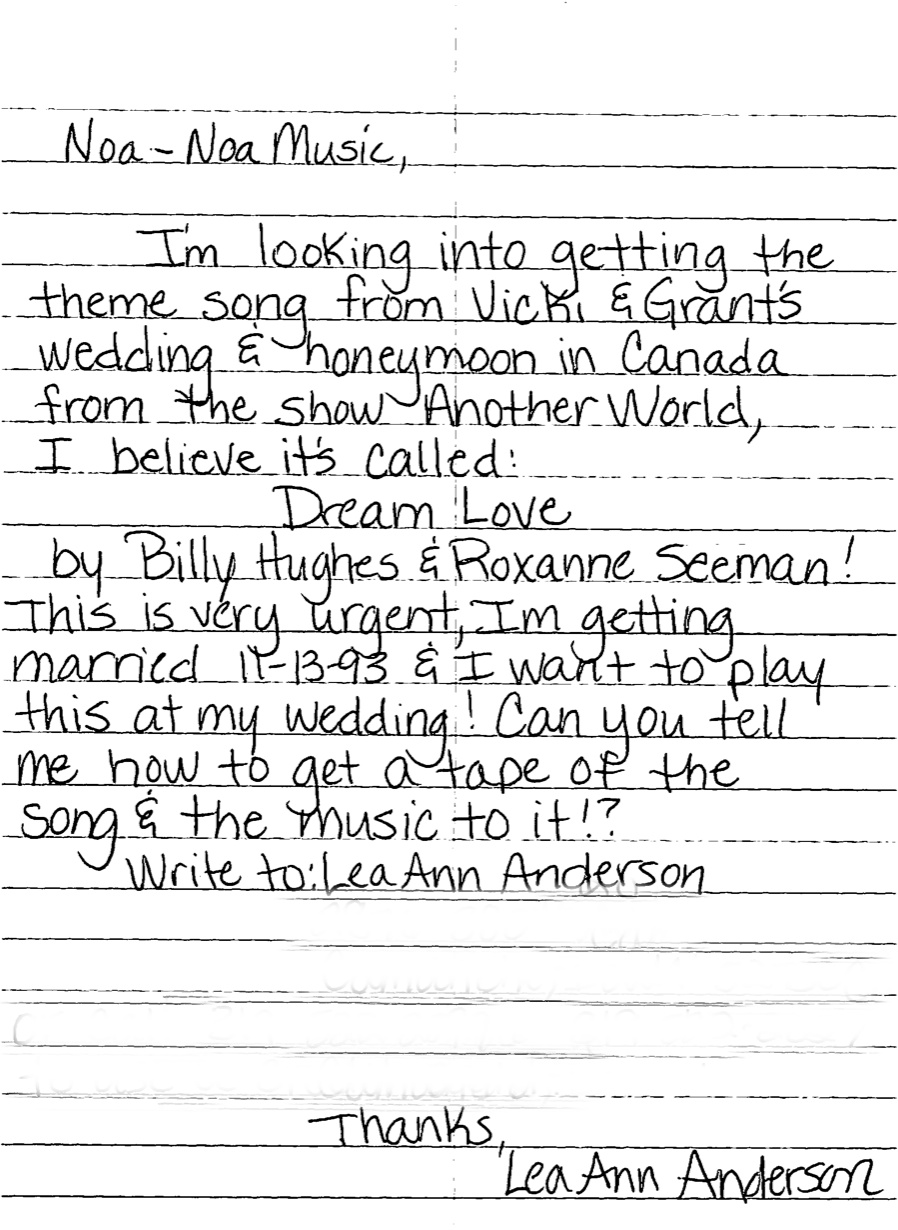 Noa-Noa Music,
I'm looking into getting the
theme song from Vicki & Grant's
wedding & honeymoon in Canada
from the show Another World,
I believe it's called:
Dream Love
by Billy Hughes & Roxanne Seeman!
This is very urgent, I'm getting
married 11-13-93 & I want to play
this at my wedding! Can you tell
me how to get a tape of the
song & the music to it!?
Write to: LeaAnn Anderson
Thanks,
LeaAnn Anderson